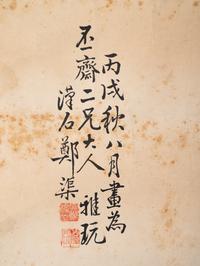 丙戌秋八月畫為
丕齋二兄大人雅玩
漢石鄭渠